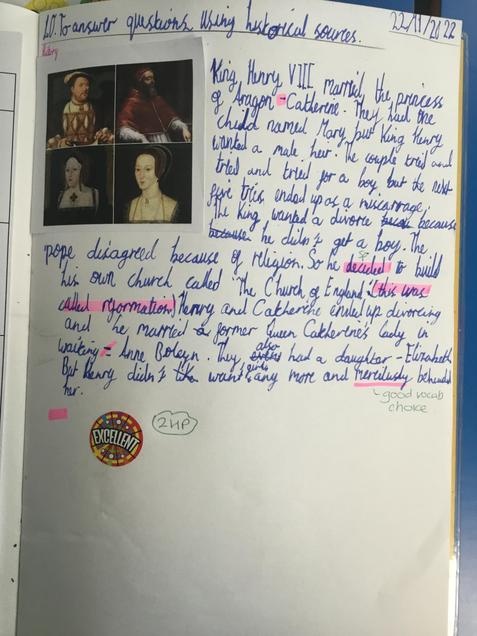 L.O. To answer questions using historical sources.
22/11/2022
History
King Henry VIII married the princess
of Aragon - Catherine. They had the
child named Mary but King Henry
wanted a male heir. The couple tried and
tried and tried for a boy but the next
five tries ended up as a miscarrage.
The king wanted a divorce because
because he didn't get a boy. The
pope disagreed because of religion. So he decided to build
his own church called "The Church of England" (this was
called reformation) Henry and Catherine ended up divorcing
and he married a former Queen Catherine's lady in
waiting - Anne Boleyn. They also had a daughter - Elizabeth
But Henry didn't like want girls any more and mercilusly behended
her.
good vocab
choice
EXCELLENT
2HP